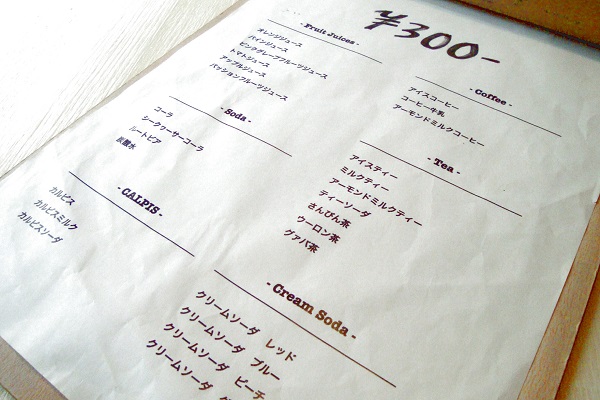 ¥300-
- Fruit Juices -
オレンジジュース
パインジュース
ピンクグレープフルーツジュース
トマトジュース
アップルジュース
パッションフルーツジュース
- Soda -
コーラ
シークワーサーコーラ
ルートビア
炭酸水
- CALPIS -
カルピス
カルピスミルク
カルピスソーダ
- Coffee -
アイスコーヒー
コーヒー牛乳
アーモンドミルクコーヒー
- Tea -
アイスティー
ミルクティー
アーモンドミルクティー
ティーソーダ
さんぴん茶
ウーロン茶
グァバ茶
- Cream Soda -
クリームソーダ レッド
クリームソーダ ブルー
クリームソーダ ピーチ
クリームソーダ